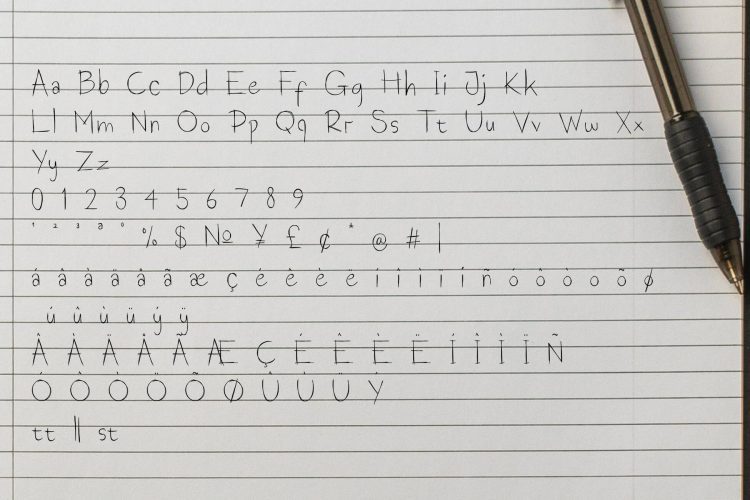 Aa Bb Cc Dd Ee Ff Gg Hh Ii Jj Kk
Ll Mm Nn Oo Pp Qq Rr Ss Tt Uu Vv Ww Xx
Yy Zz
0 1 2 3 4 5 6 7 8 9
¹ ² ³ ª º % $ № ¥ £ ¢ * @ # |
á â à ä å ã æ ç é ê è ë í î ì ï í ñ ó ô ò ö õ ø
ú û ù ü ý ÿ
Â À Ä Å Ã Æ Ç É Ê È Ë Í Î Ì Ï Ñ
Ó Ô Ò Ö Õ Ø Û Ù Ü Ý
tt ll st